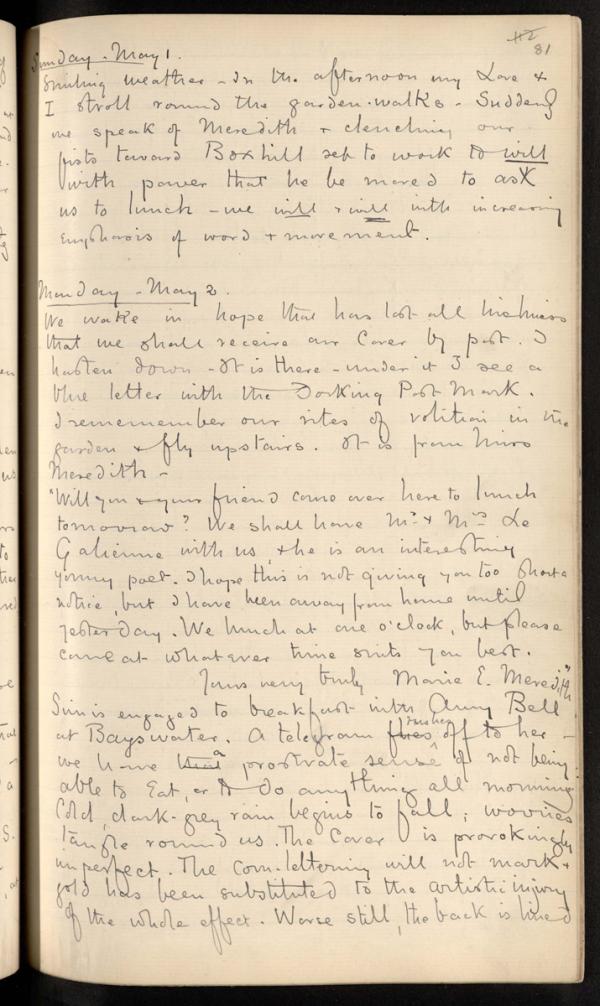 112
81
Sunday - May 1.
Smiling weather - In the afternoon my Love &
I stroll round the garden-walks - Suddenly
we speak of Meredith & clenching our
fists toward Boxhill set to work to will
with power that he be moved to ask
us to lunch - we will & will with increasing
emphasis of word & movement.
Monday - May 2.
We wake in hope that has lost all
that we shall receive our Cover by post. I
hasten down - It is there - under it I see a
blue letter with the Dorking Post Mark.
I rememember our rites of volition in the
garden & fly upstairs. It is from Miss
Meredith -
"Will you & your friend come over here to lunch
tomorrow? We shall have Mr. & Mrs Le
Galienne with us, & he is an interesting
young poet. I hope this is not giving you too short a
notice, but I have been away from home until
yesterday. We lunch at one o'clock, but please
come at whatever time suits you best.
Yours very truly Marie E. Meredith"
Sim is engaged to breakfast with Bell
at Bayswater. A telegram flies rushes off to her -
we have that a prostrate sense of not being
able to Eat, or to do anything all morning.
Cold, dark-grey rain begins to fall; worries
tangle round us. The Cover is provokingly
imperfect. The Corn-lettering will not mark &
gold has been substituted to the artistic injury
of the whole effect. Worse still, the back is lined